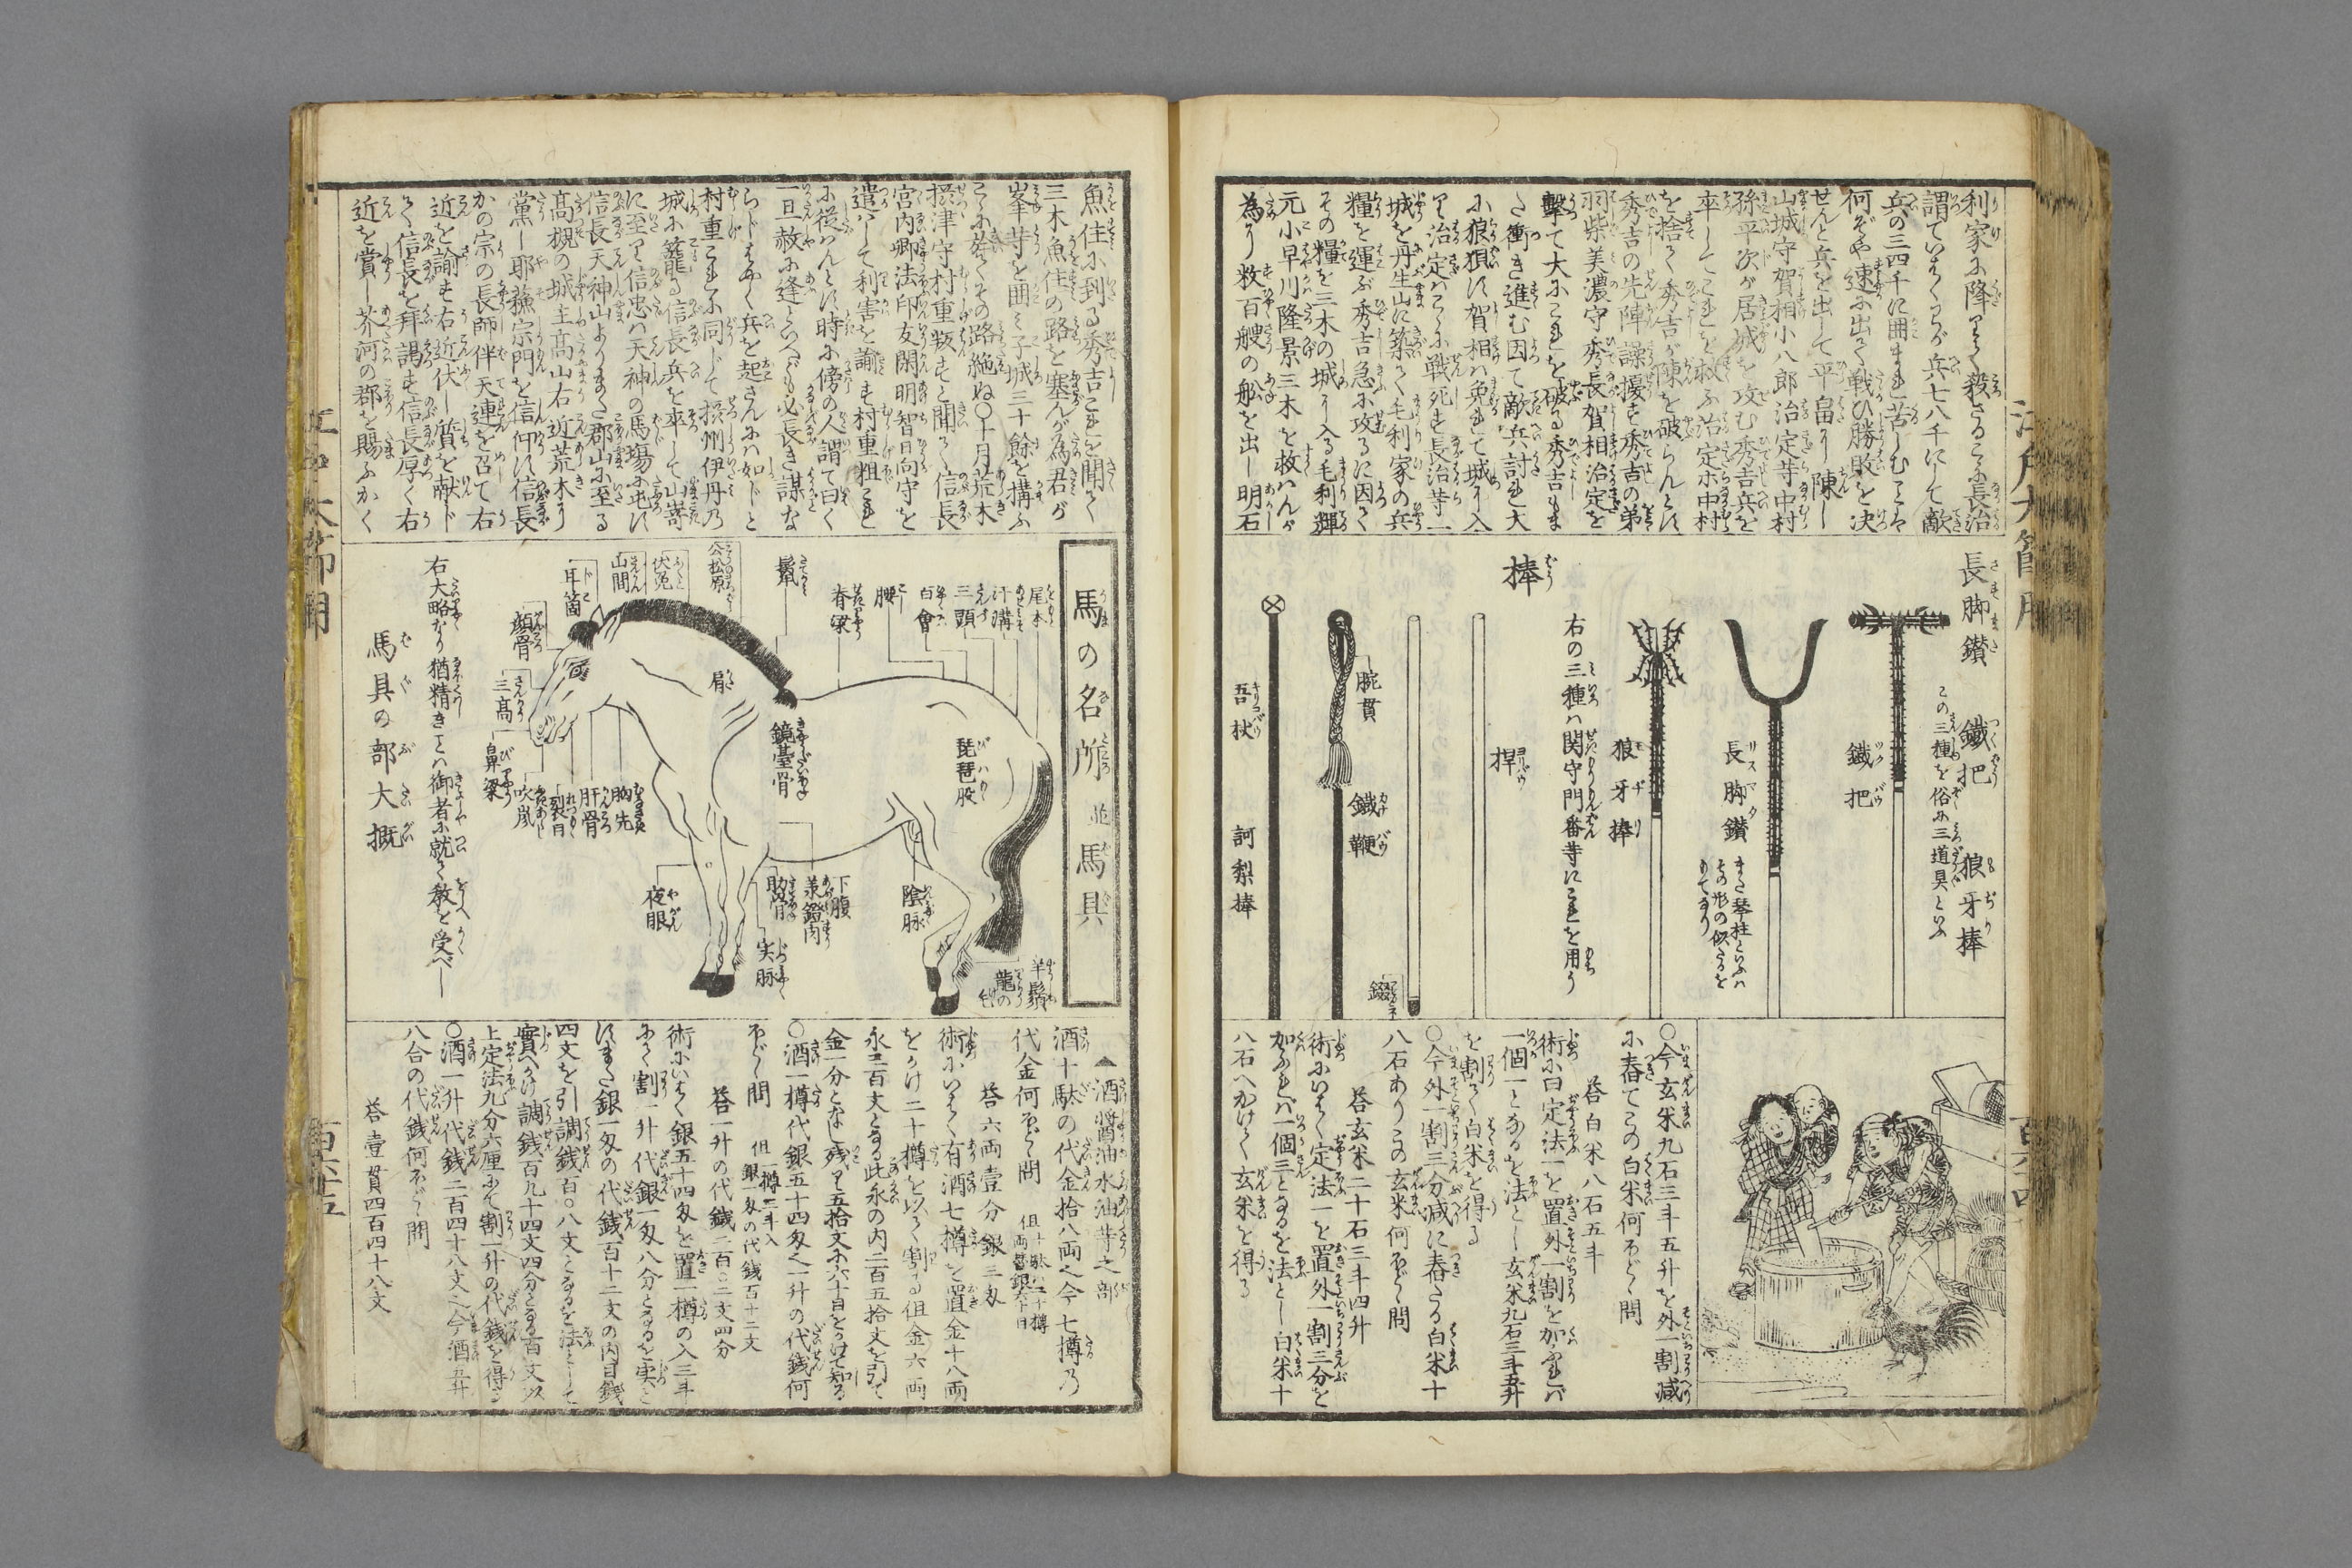 利家に降りて救さるゝに長治
謂ていはくわが兵七八千にして敵
兵の三四千に囲まれ苦しむことや
何ぞや速に出て戦ひ勝敗を決
せんと兵を出して平畠に陳し
山城守賀相小八郎治定等中村
孫平次が居城を攻む秀吉兵を
率してこれを救ふ治定中村
を捨て秀吉が陳を破らんとす
秀吉の先陣譟擾す秀吉の弟
羽柴美濃守秀長賀相治定を
撃て大にこれを破る秀吉もま
た衝き進む因て敵兵討れ大
に狼狽す賀相は免れて城に入
り治定はこゝに戦死す長治等一
城を丹生山に築て毛利家の兵
糧を運ぶ秀吉急に攻るに因て
その糧を三木の城に入る毛利輝
元小早川隆景三木を救はんが
為に数百艘の船を出し明石
長脚鑚 鐵把 狼牙棒
この三種を俗に三道具といふ
鐵把
長脚鑚
また琴柱といふは
その形の似たるを
もてなり
狼牙棒
右の三種は関守門番等にこれを用う
棒
桿
鐵鞭
腕貫
吾杖
訶梨棒
〇今玄米九石三斗五升を外一割減
に舂てこの白米何ほど〻問
答白米八石五斗
術に曰定法一を置外一割を加ふれば
一個一となるを法とし玄米九石三斗五升
を割て白米を得る
〇今外一割三分減に舂たる白米十
八石ありこの玄米何ほど〻問
答玄米二十石三斗四升
術にいはく定法一を置外一割三分を
加ふれば一個三となるを法とし白米十
八石へかけて玄米を得る
魚住に到る秀吉これを聞て
三木魚住の路を塞んが為君が
峯等を囲み子城三十餘を構ふ
こゝに於てその路絶ぬ〇十月荒木
摂津守村重叛すと聞て信長
宮内卿法印友閑明智日向守を
遣はして利害を諭す村重粗これ
に従はんとす時に傍の人謂て曰く
一旦赦に逢といへども必長き謀な
らじはやく兵を起さんには如じと
村重これに同じて摂州伊丹の
城に籠る信長兵を率して山嵜
に至り信忠は天神の馬場に屯す
信長天神山よりまた郡山に至る
高槻の城主高山右近荒木に
黨し耶蘇宗門を信仰す信長
かの宗の長師伴天連を召て右
近を諭す右近伏し質を献じ
て信長を拝謁す信長厚く右
近を賞し芥河の郡を賜ふかく
馬の名所 並 馬具
尾本
汗溝
三頭
百會
腰
脊梁
鬐
公松原
伏兎
山間
耳箇
顔骨
三高
鼻梁
吹嵐
裂目
肝骨
胸先
肩
鏡臺骨
琵琶股
夜眼
肋骨
下腹
実脉
陰脉
羊鬚
龍の毛
右大略なり猶精きことは御者に就て教を受べし
馬具の部大概
▲酒醤油水油等之部
酒十駄の代金拾八両也今七樽の
代金何ほど〻問
答六両壹分銀三匁
術にいはく有酒七樽を置金十八両
をかけ二十樽を以て割る但金六両
永三百文となる此永の内二百五拾文を引て
金一分となし残り五拾文に六十目をかけて知る
〇酒一樽代銀五十四匁也一升の代銭何
ほど〻問
答一升の代銭二百〇二文四分
術にいはく銀五十四匁を置一樽の入三斗
にて割一升代銀一匁八分となるを実と
すまた銀一匁の代銭百十二文の内目銭
四文を引調銭百〇八文となるを法として
實へかけ調銭百九十四文四分となる百文以
上定法九分六厘にて割一升の代銭を得る
〇酒一升代銭二百四十八文也今酒五升
八合の代銭何ほど〻問
答壹貫四百四十八文